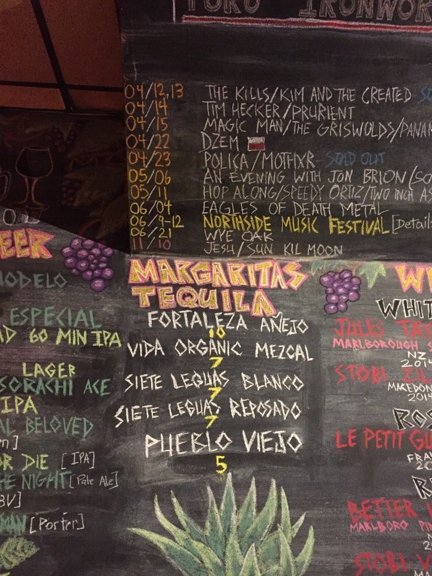 IRONWOR
04/12,13 THE KILLS/KIM AND THE CREATED SO
04/14 TIM HECKER/PRURIENT
04/15 MAGIC MAN/THE GRISWOLDS/PANAM
04/22 DZEM
04/23 POLICA/MOTHXR SOLD OUT
05/06 AN EVENING WITH JON BRION/SO
05/11 HOP ALONG/SPEEDY ORTIZ/TWO INCH AS
06/04 EAGLES OF DEATH METAL
06/9-12 NORTHSIDE MUSIC FESTIVAL [Details
WYE OAK
11/10 JESU/SUN KIL MOON
BEER
MODELO
ESPECIAL
AD 60 MIN IPA
LAGER
SORACHI ACE
IPA
AL BELOVED
OR DIE [IPA]
THE NIGHT [Pale Ale]
BV]
[Porter]
MARGARITAS
TEQUILA
FORTALEZA AÑEJO
10
VIDA ORGANIC MEZCAL
7
SIETE LEGUAS BLANCO
7
SIETE LEGUAS REPOSADO
7
PUEBLO VIEJO
5
WI
WHIT
JULES TA
MARLBOROUGH S
NZ
2014
STOBI
MACEDON
2014
ROS
LE PETIT GU
FRAN
20
R
BETTER
MARLBORO PIN
NZ
STOBI V
MA